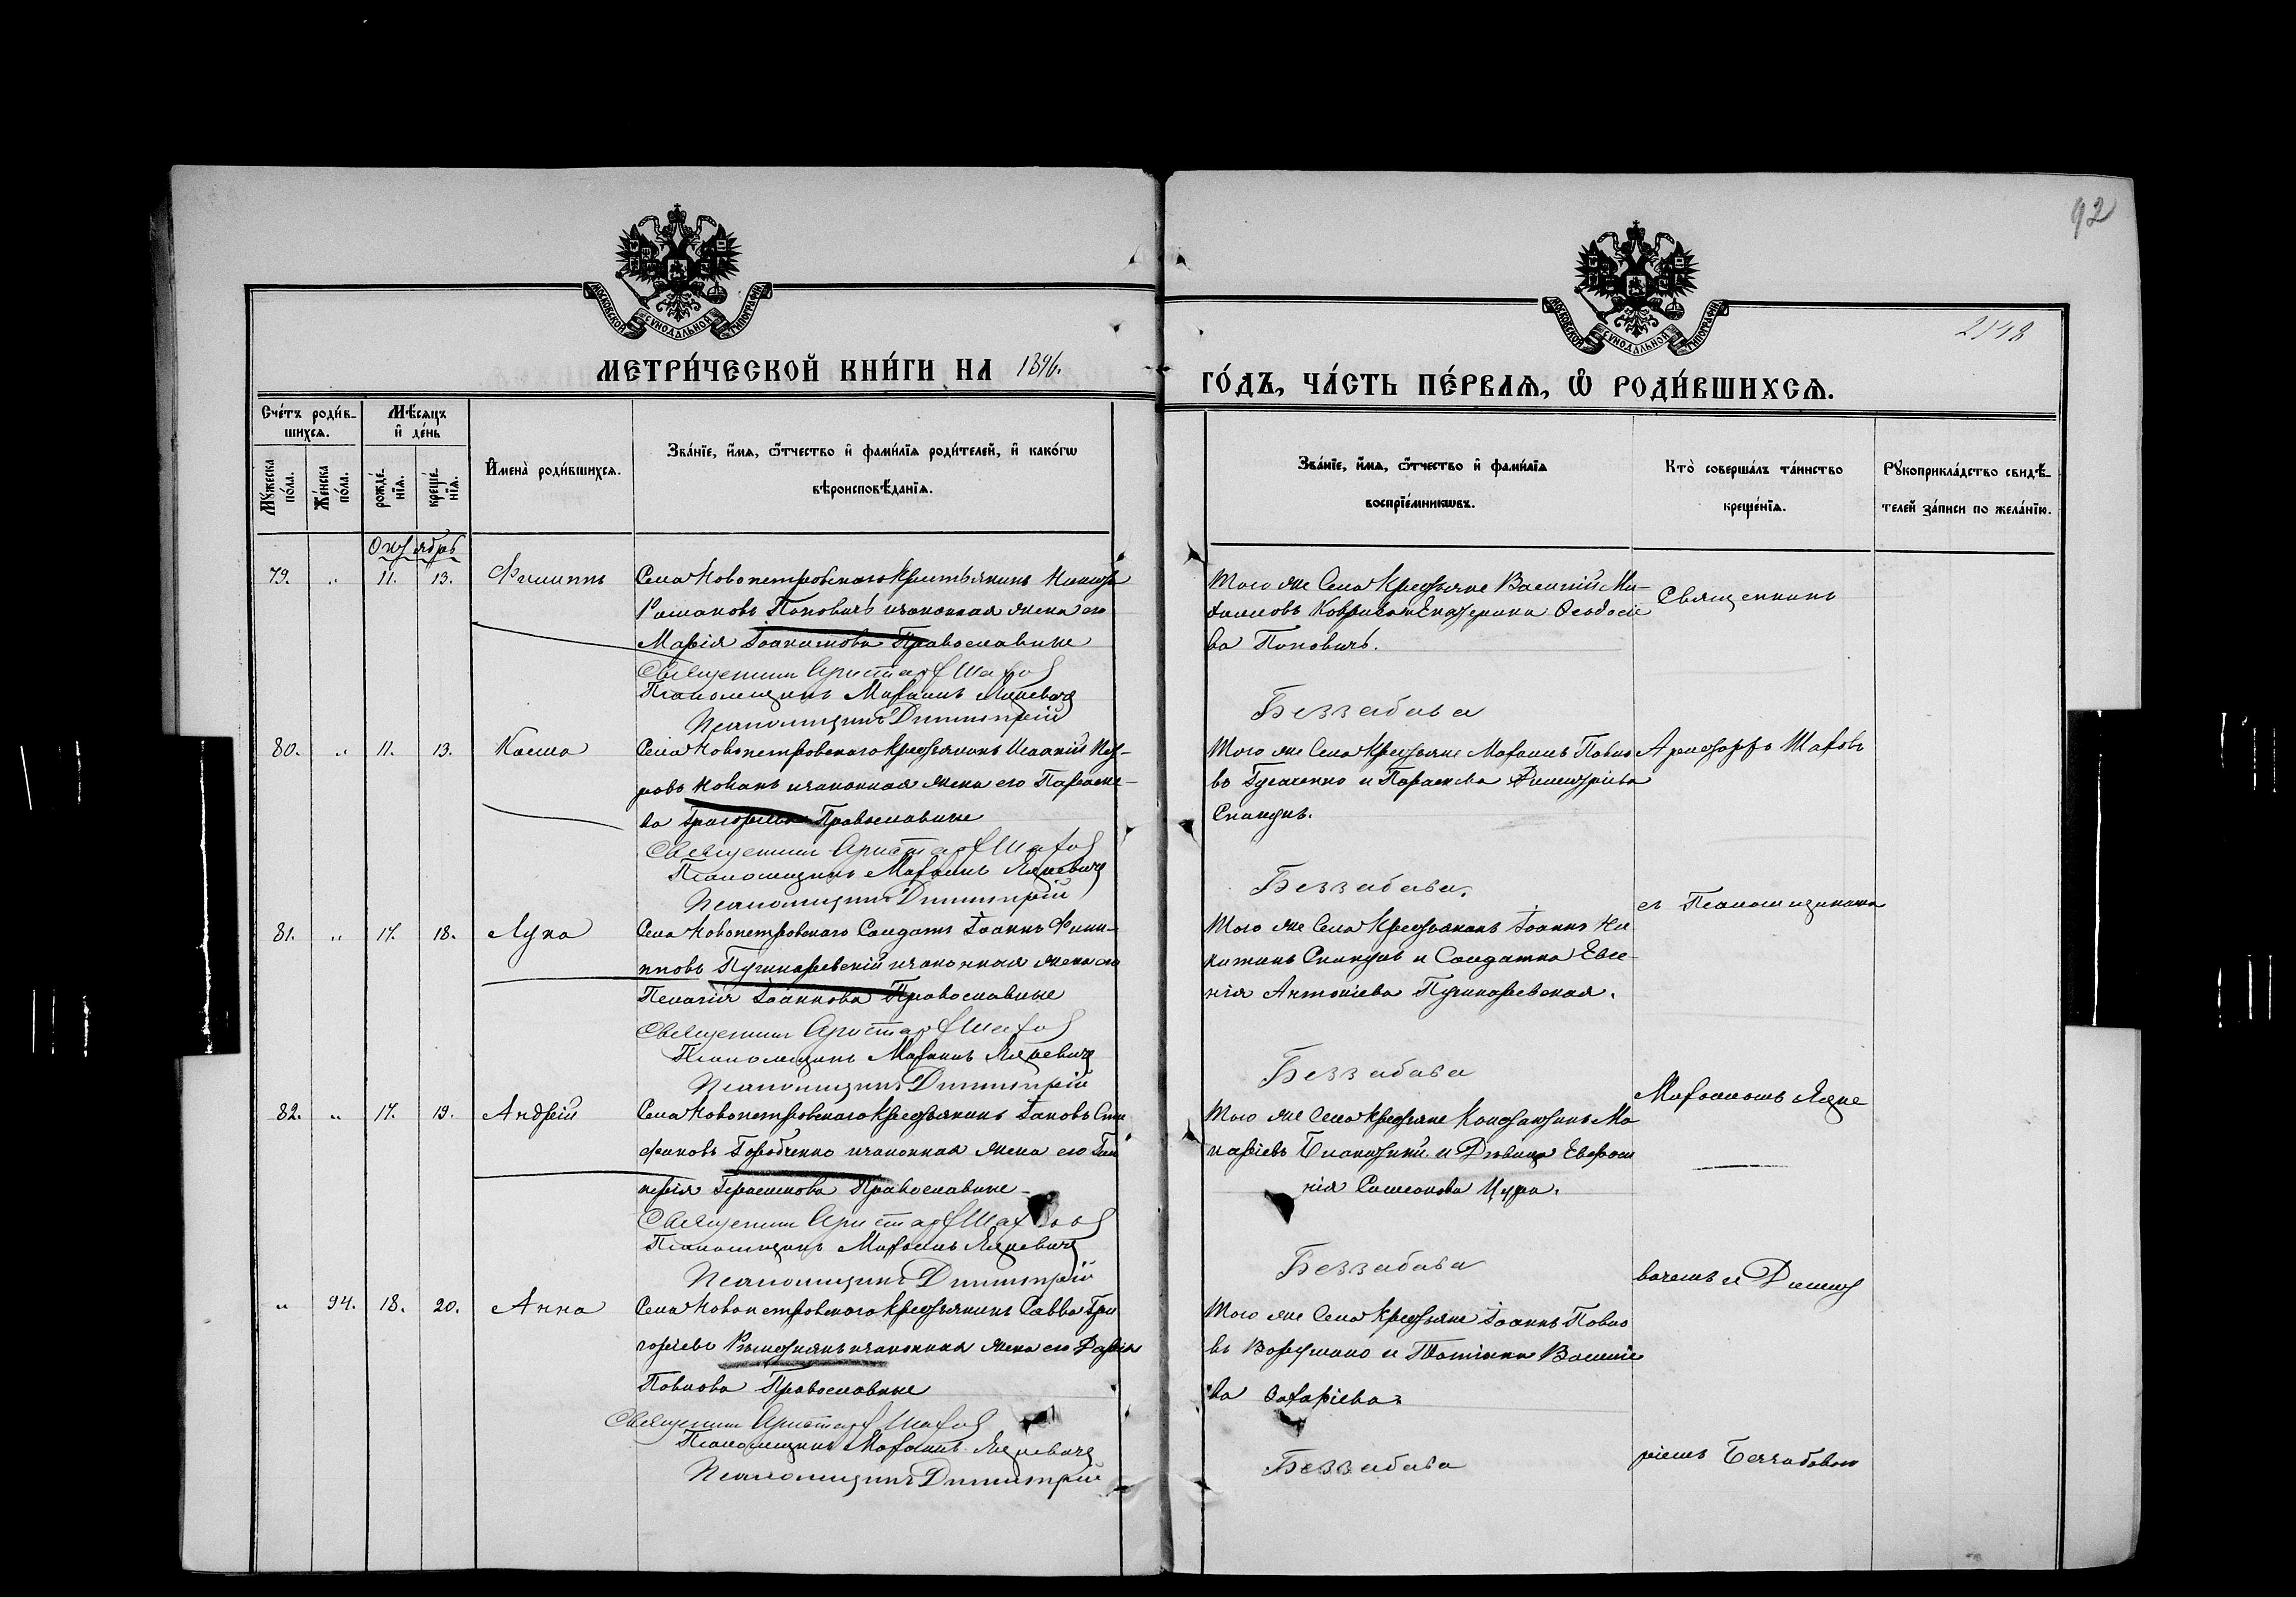 92
2148
МОСКОВСКОЙ СѴНОДАЛЬНОЙ ТИПОГРАФІИ
МОСКОВСКОЙ СѴНОДАЛЬНОЙ ТИПОГРАФІИ
МЕТРИ́ЧЕСКОЙ КНИ́ГИ НА 1896.
ГО́ДЪ, ЧА́СТЬ ПЕ́РВАѦ, Ѽ РОДИ́ВШИХСѦ.
Сче́тъ роди́в-
шихсѧ.
Мѣ́сѧцъ
и҆ де́нь
Мꙋ́жеска
по́ла.
Же́нска
по́ла.
рожде́-
нїѧ.
креще́-
нїѧ.
И҆мена̀ роди́вшихсѧ.
Зва́нїе, и҆́мѧ, ѻ҆́тчество и҆ фами́лїѧ роди́телей, и҆ како́гѡ
вѣроисповѣ́данїѧ.
Зва́нїе, и҆́мѧ, ѻ҆́тчество и҆ фами́лїѧ
воспрїе́мникѡвъ.
Кто̀ соверша́лъ та́инство
креще́нїѧ.
Рꙋкоприкла́дство свидѣ́-
телей за́писи по жела́нїю.
Октябрь
79. " 11. 13. Филиппъ
Села Новопетровскаго Крестьянинъ Никита
Романовъ Поповичъ и законная жена его
Марія Іоакимова Православные
Священникъ Аристархъ Шаховъ
Псаломщикъ Михаилъ Яцкевичъ
Псаломщикъ Димитрій
Того же Села Крестьяне Василій Ми-
хаиловъ и Екатерина Ѳеодосіе
ва Поповичъ.
Беззабава
Священникъ
80. " 11. 13. Косма
Села Новопетровскаго Крестьянинъ Исаакій Пет-
ровъ Кованъ и законная жена его Параске-
ва Григорьева Православные
Священникъ Аристархъ Шаховъ
Псаломщикъ Михаилъ Яцкевичъ
Псаломщикъ Димитрій
Того же Села Крестьяне Михаилъ Павло
въ и Параскева Димитріева
Скапунъ.
Беззабава.
Аристархъ Шаховъ
съ Псаломщиками
81. " 17. 18. Лука
Села Новопетровскаго Солдатъ Іоаннъ Фили-
пповъ Пушкаревскій и законная жена его
Пелагія Іоаннова Православные
Священникъ Аристархъ Шаховъ
Псаломщикъ Михаилъ Яцкевичъ
Псаломщикъ Димитрій
Того же Села Крестьянинъ Іоаннъ Ни
китинъ Скапунъ и Солдатка Евге-
нія Антоніева Пушкаревская.
Беззабава
Михаиломъ Яцке
82. " 17. 19. Андрей
Села Новопетровскаго Крестьянинъ Іаковъ Сте
фановъ Городченко и законная жена его Гли
керія Герасимова Православные
Священникъ Аристархъ Шаховъ
Псаломщикъ Михаилъ Яцкевичъ
Псаломщикъ Димитрій
Того же Села Крестьяне Константинъ Ма
каріевъ и Дѣвица Евфроси
нія Самсонова Цура.
Беззабава
вичемъ и Димит
" 94. 18. 20. Анна
Села Новопетровскаго Крестьянинъ Савва Гри
горіевъ и законная жена его Дарія
Павлова Православные
Священникъ Аристархъ Шаховъ
Псаломщикъ Михаилъ Яцкевичъ
Псаломщикъ Димитрій
Того же Села Крестьяне Іоаннъ Павло
въ и Татіана Василіе
ва Захаріева.
Беззабава
ріемъ Беззабавою